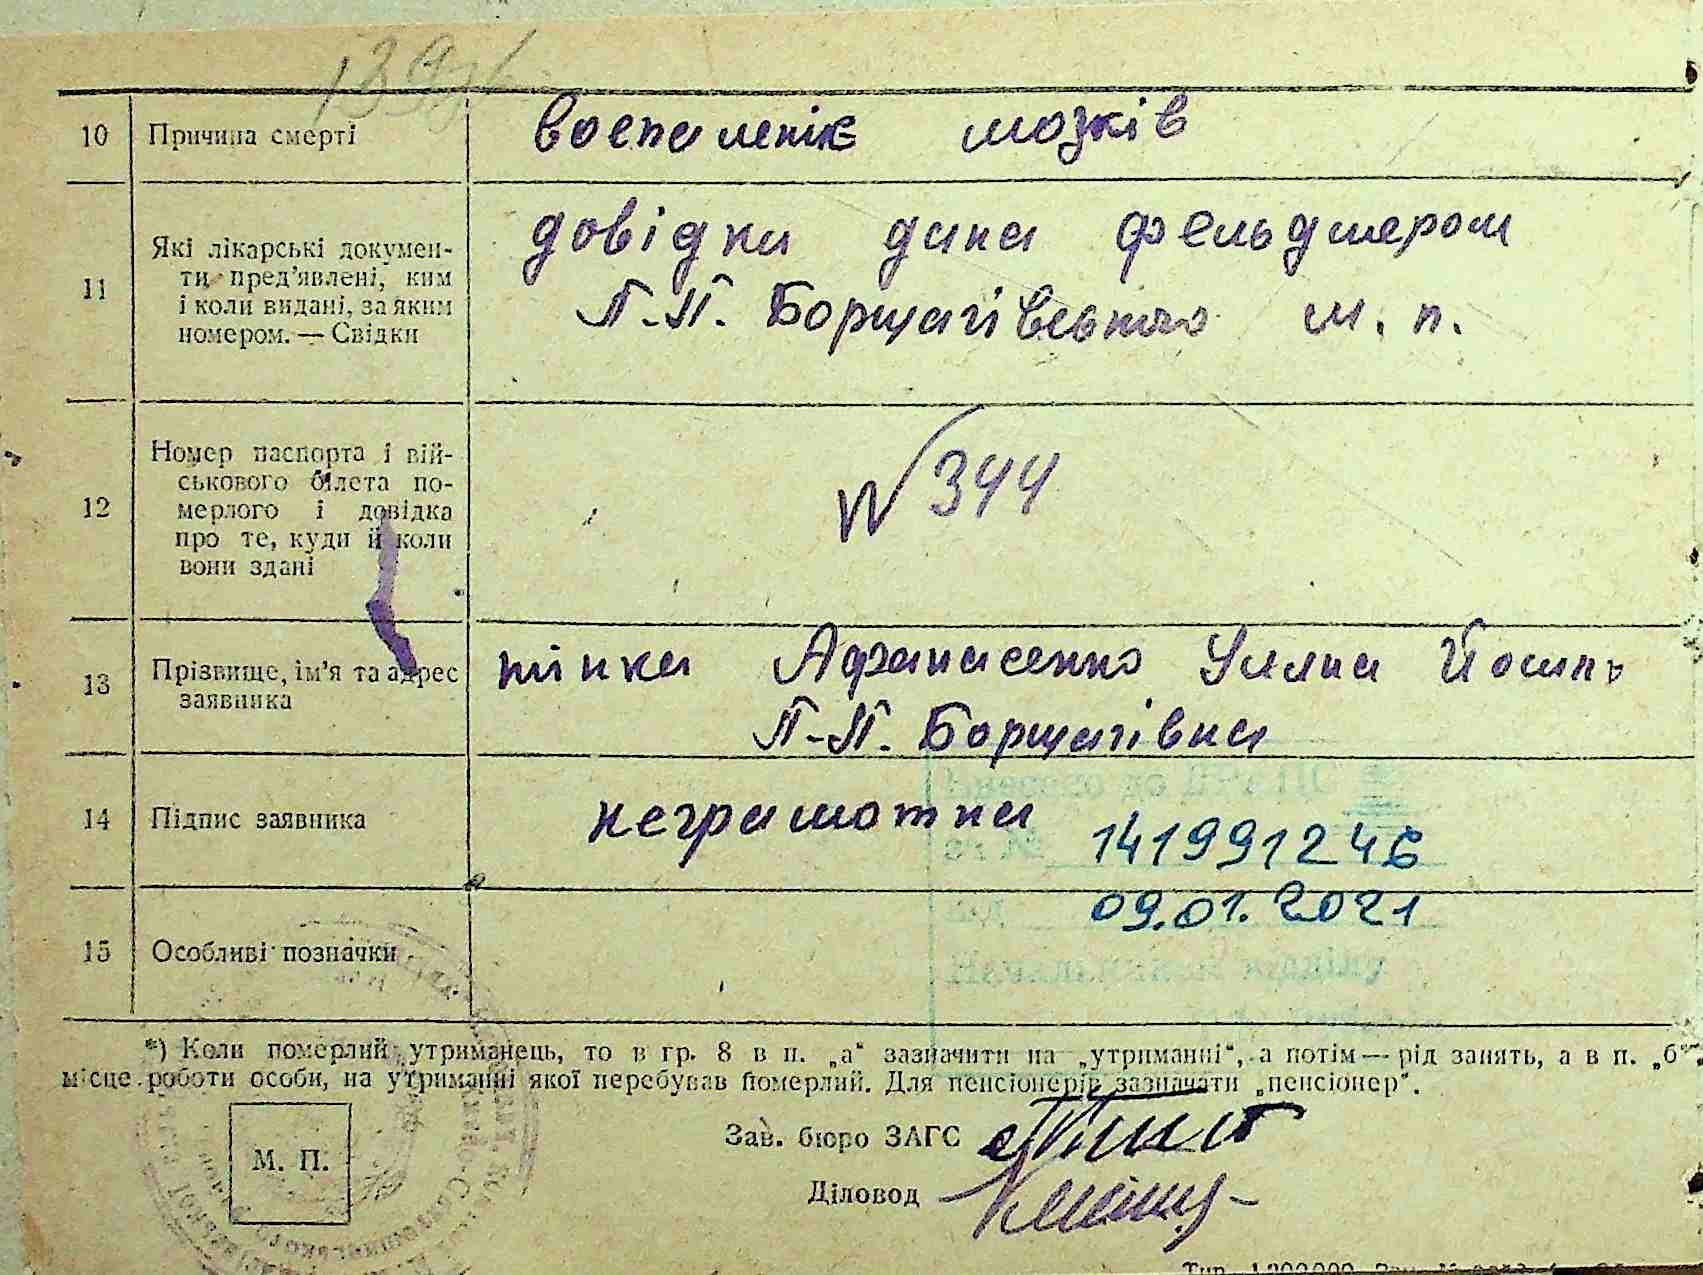 10 Причина смерті воспаленіє мозків
11 Які лікарські докумен-
ти пред'явлені, ким
і коли видані, за яким
номером. — Свідки
довідка дана фельдшером
П.-П. Борщагівського м. п.
12 Номер паспорта і вій-
ськового білета по-
мерлого і довідка
про те, куди й коли
вони здані
N 344
13 Прізвище, ім'я та адрес
заявника
жінка Афанасенко Уляна Йосип
П.-П. Борщагівка
14 Підпис заявника неграмотна
141991246
09.01.2021
15 Особливі позначки
*) Коли померлий утриманець, то в гр. 8 в п. „а“ зазначити на „утриманні“, а потім — рід занять, а в п. „б“
місце роботи особи, на утриманні якої перебував померлий. Для пенсіонерів зазначати „пенсіонер“.
М. П.
Зав. бюро ЗАГС
Діловод